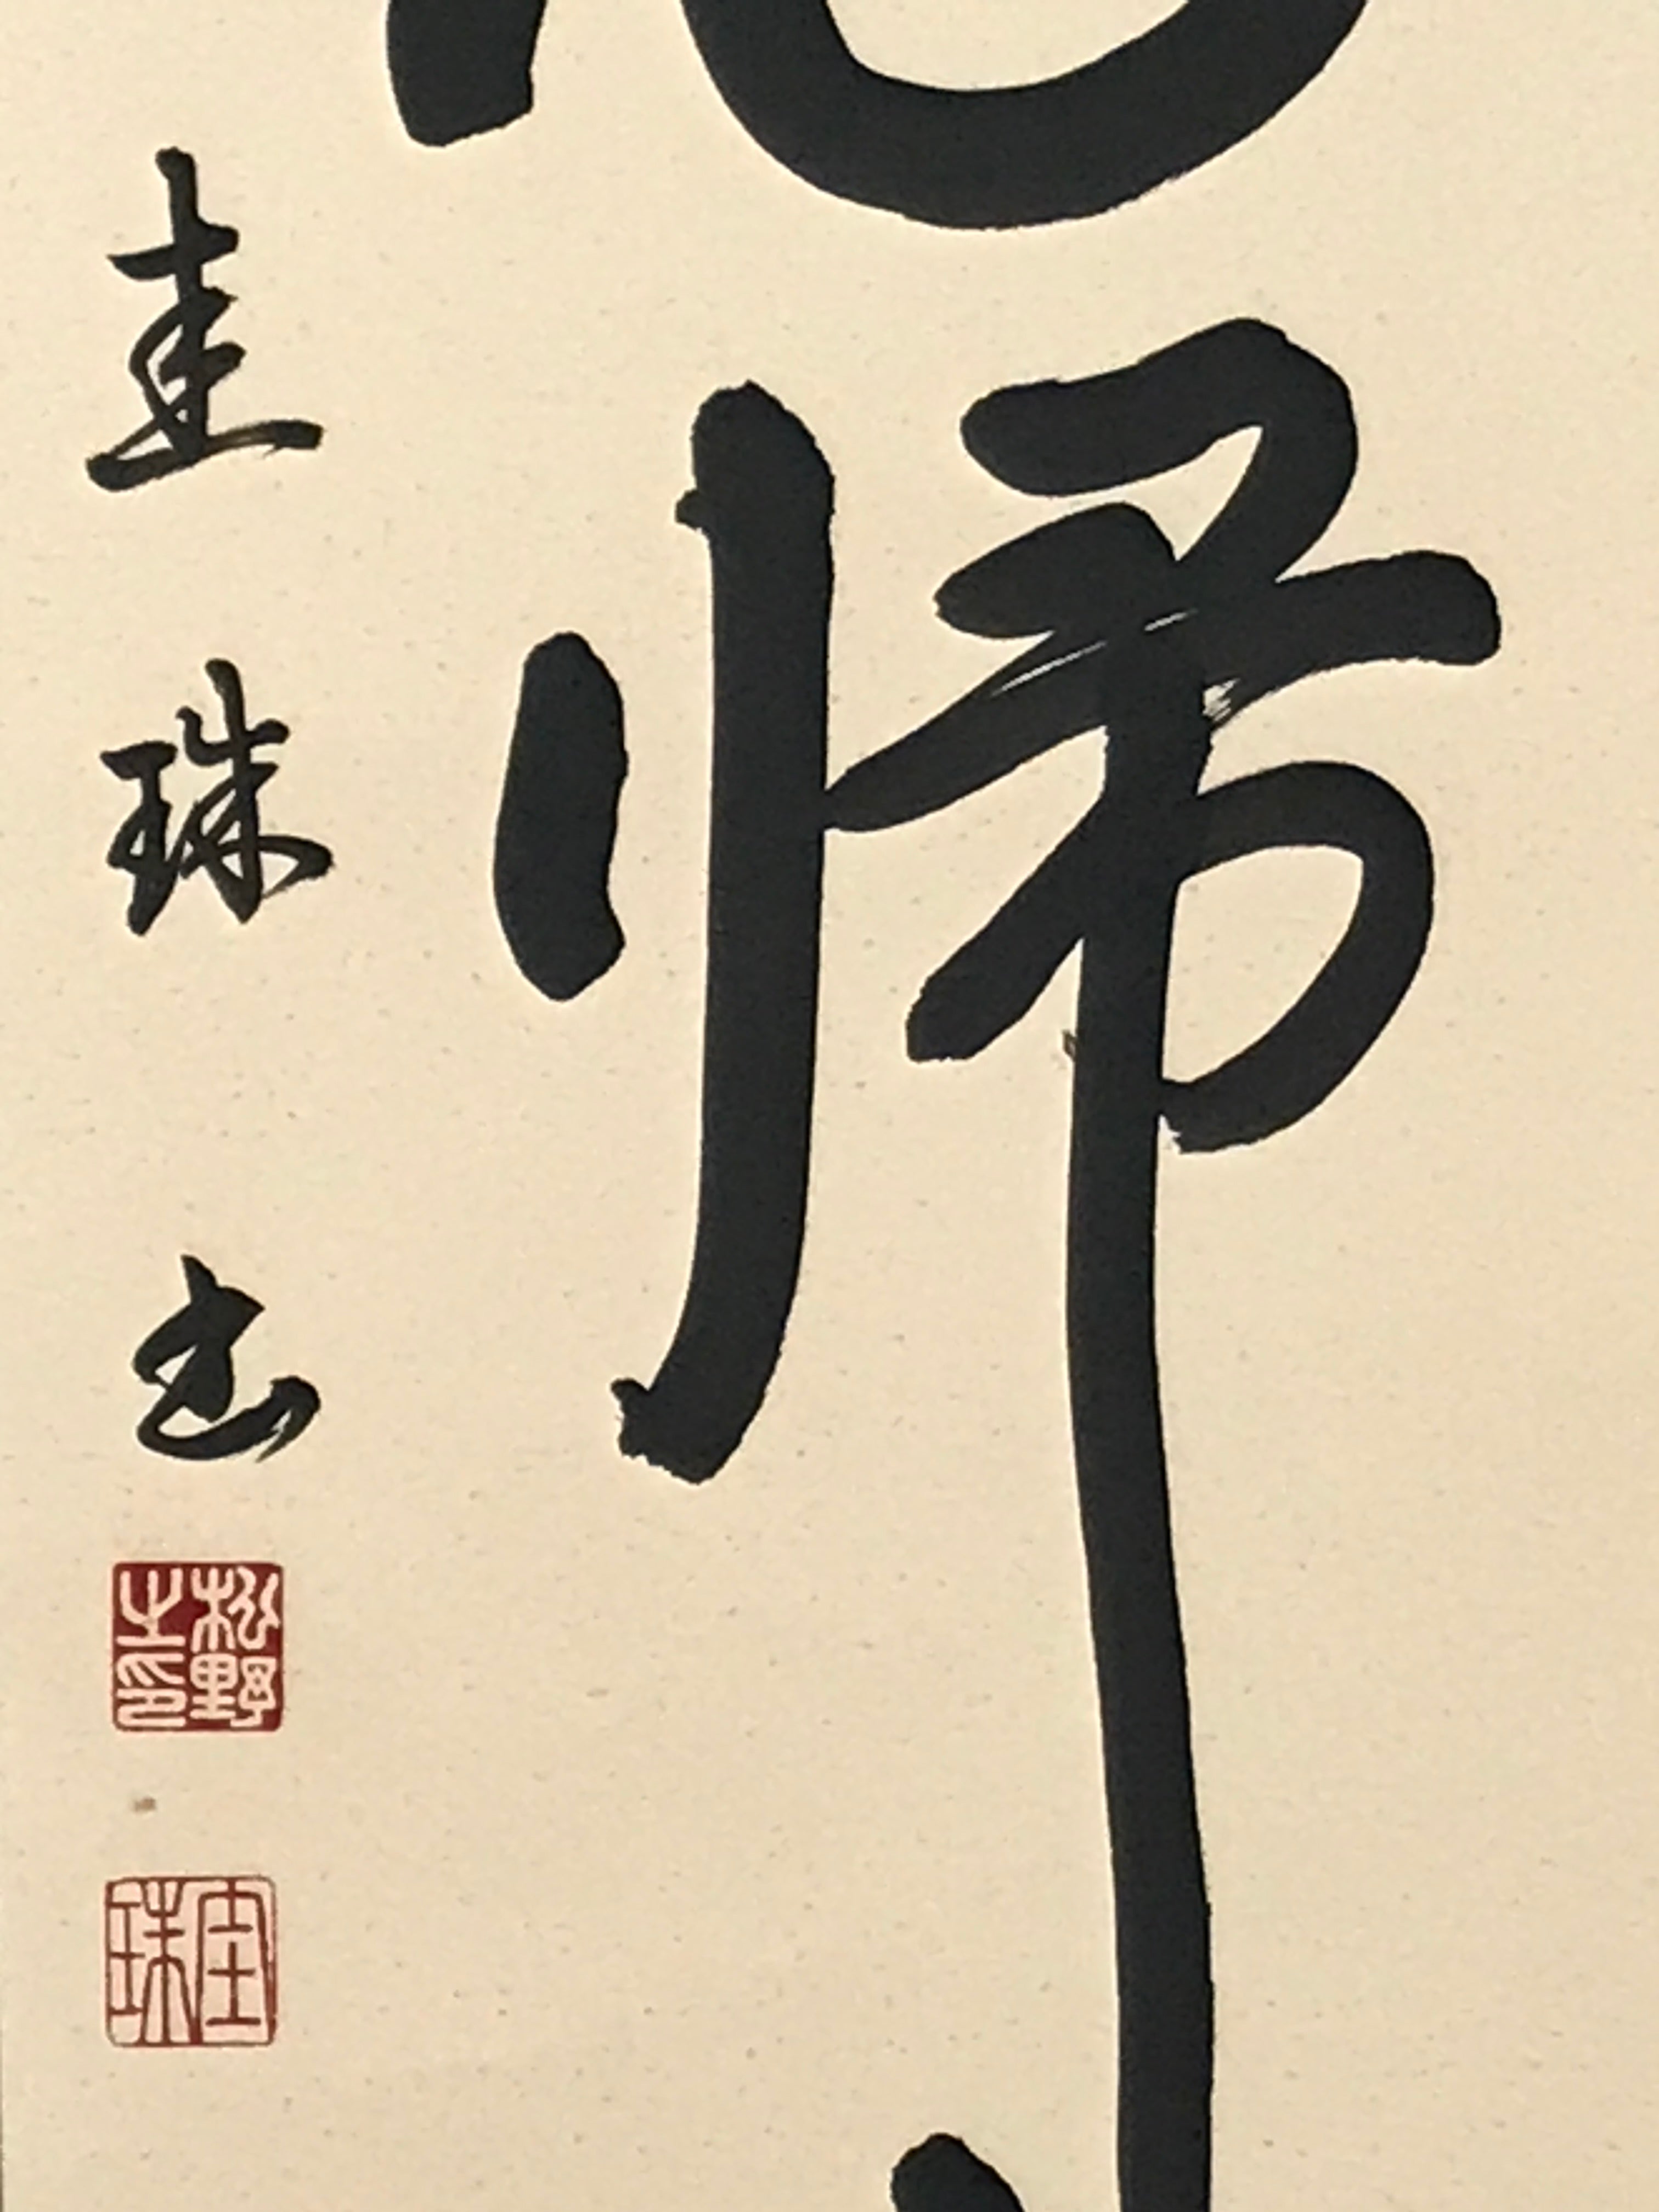 帰
圭珠書
松野之印
圭珠